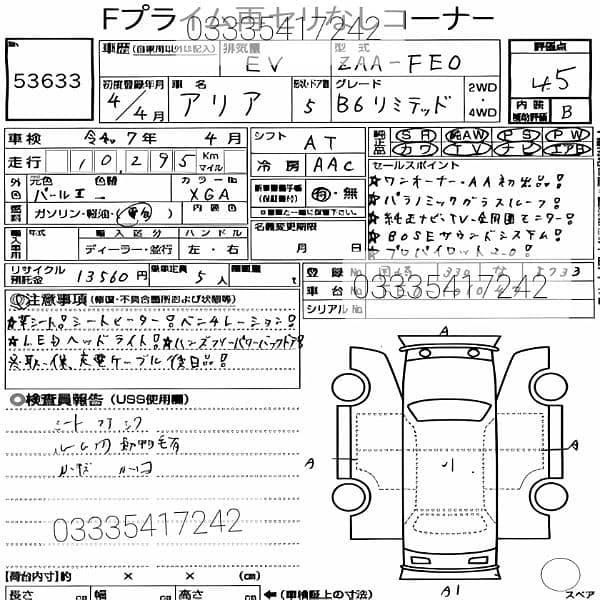 Fプライム両セリなしコーナー
03335417242
53633
車歴 (自家用以外は記入)
排気量
EV
型式
ZAA-FE0
評価点
4.5
初度登録年月
4年4月
車名
アリア
形状・ドア数
5
グレード
B6リミテッド
2WD
・
4WD
内装
補助評価
B
車検 令和7年 4月
シフト
AT
純正品
SR AW PS PW
カワ TV ナビ エアB
走行 10,295 Km マイル
冷房 AAC
セールスポイント
★ワンオーナー・AA初出品!
外色 元色 色替
パールⅡ
カラーNo
XGA
内装色
新車整備手帳
(保証書付)
有・無
★パノラミックガラスルーフ!
燃料 ガソリン・軽油・(電気)
★純正ナビ・TV・全周囲モニター!
名義変更期限
月 日
★BOSEサウンドシステム!
★プロパイロット2.0!
輸入車用 年式 輸入区分 ハンドル
ディーラー・並行 左・右
リサイクル預託金 13560円
乗車定員 5人
積載量 t
登録No
車台No
03335417242
シリアルNo.
注意事項 (修復・不具合箇所および状態等)
★革シート!シートヒーター!ベンチレーション!
★LEDヘッドライト!★ハンズフリーパワーバックドア!
※取・保、充電ケーブル後日品!
検査員報告 (USS使用欄)
シート
03335417242
A
A
A
A1
【荷台内寸】約 × × (cm)
長さ cm 幅 cm 高さ cm ←(車検証上の寸法)
スペア